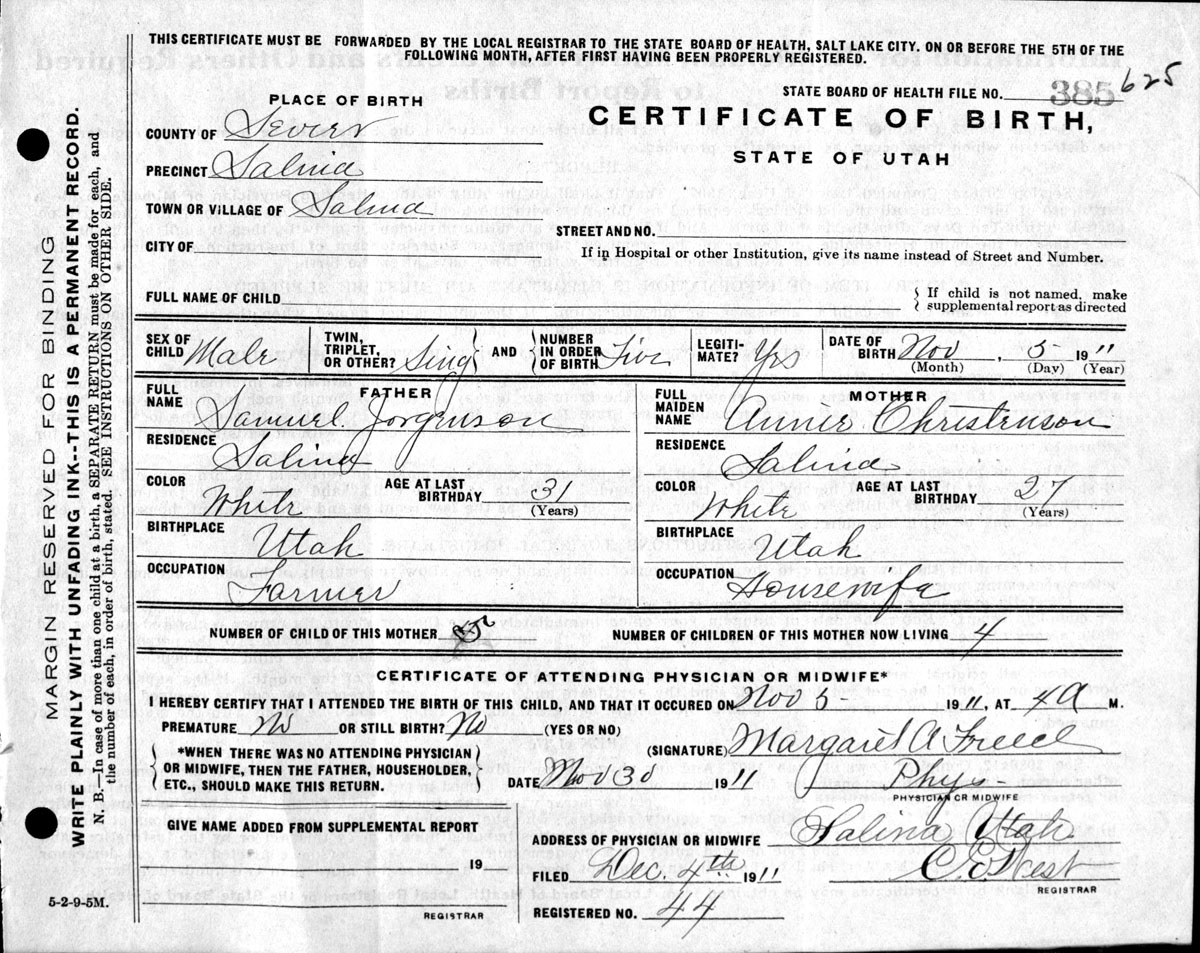 THIS CERTIFICATE MUST BE FORWARDED BY THE LOCAL REGISTRAR TO THE STATE BOARD OF HEALTH, SALT LAKE CITY. ON OR BEFORE THE 5TH OF THE
FOLLOWING MONTH, AFTER FIRST HAVING BEEN PROPERLY REGISTERED.
STATE BOARD OF HEALTH FILE NO. 385 625
PLACE OF BIRTH
CERTIFICATE OF BIRTH,
STATE OF UTAH
COUNTY OF Sevier
PRECINCT Salina
TOWN OR VILLAGE OF Salina
STREET AND NO.
CITY OF
If in Hospital or other Institution, give its name instead of Street and Number.
FULL NAME OF CHILD
If child is not named, make
supplemental report as directed
SEX OF CHILD Male
TWIN, TRIPLET, OR OTHER? Sing
AND
NUMBER IN ORDER OF BIRTH Five
LEGITI-MATE? Yes
DATE OF BIRTH Nov, 5 1911
(Month) (Day) (Year)
FATHER
FULL NAME Samuel Jorgenson
RESIDENCE Salina
COLOR White
AGE AT LAST BIRTHDAY 31
(Years)
BIRTHPLACE Utah
OCCUPATION Farmer
MOTHER
FULL MAIDEN NAME Christenson
RESIDENCE Salina
COLOR White
AGE AT LAST BIRTHDAY 27
(Years)
BIRTHPLACE Utah
OCCUPATION Housewife
NUMBER OF CHILD OF THIS MOTHER
NUMBER OF CHILDREN OF THIS MOTHER NOW LIVING 4
CERTIFICATE OF ATTENDING PHYSICIAN OR MIDWIFE*
I HEREBY CERTIFY THAT I ATTENDED THE BIRTH OF THIS CHILD, AND THAT IT OCCURED ON Nov 5- 1911, AT 4 A M.
PREMATURE No OR STILL BIRTH? No (YES OR NO)
*WHEN THERE WAS NO ATTENDING PHYSICIAN
OR MIDWIFE, THEN THE FATHER, HOUSEHOLDER,
ETC., SHOULD MAKE THIS RETURN.
(SIGNATURE) Margaret A Freece
DATE Nov 30 1911
Phys-
PHYSICIAN OR MIDWIFE
GIVE NAME ADDED FROM SUPPLEMENTAL REPORT
19
REGISTRAR
ADDRESS OF PHYSICIAN OR MIDWIFE Salina Utah
FILED Dec. 4th 1911 C. E. West
REGISTRAR
REGISTERED NO. 44
5-2-9-5M.
MARGIN RESERVED FOR BINDING
WRITE PLAINLY WITH UNFADING INK--THIS IS A PERMANENT RECORD.
N. B.--In case of more than one child at a birth, a SEPARATE RETURN must be made for each, and
the number of each, in order of birth, stated. SEE INSTRUCTIONS ON OTHER SIDE.